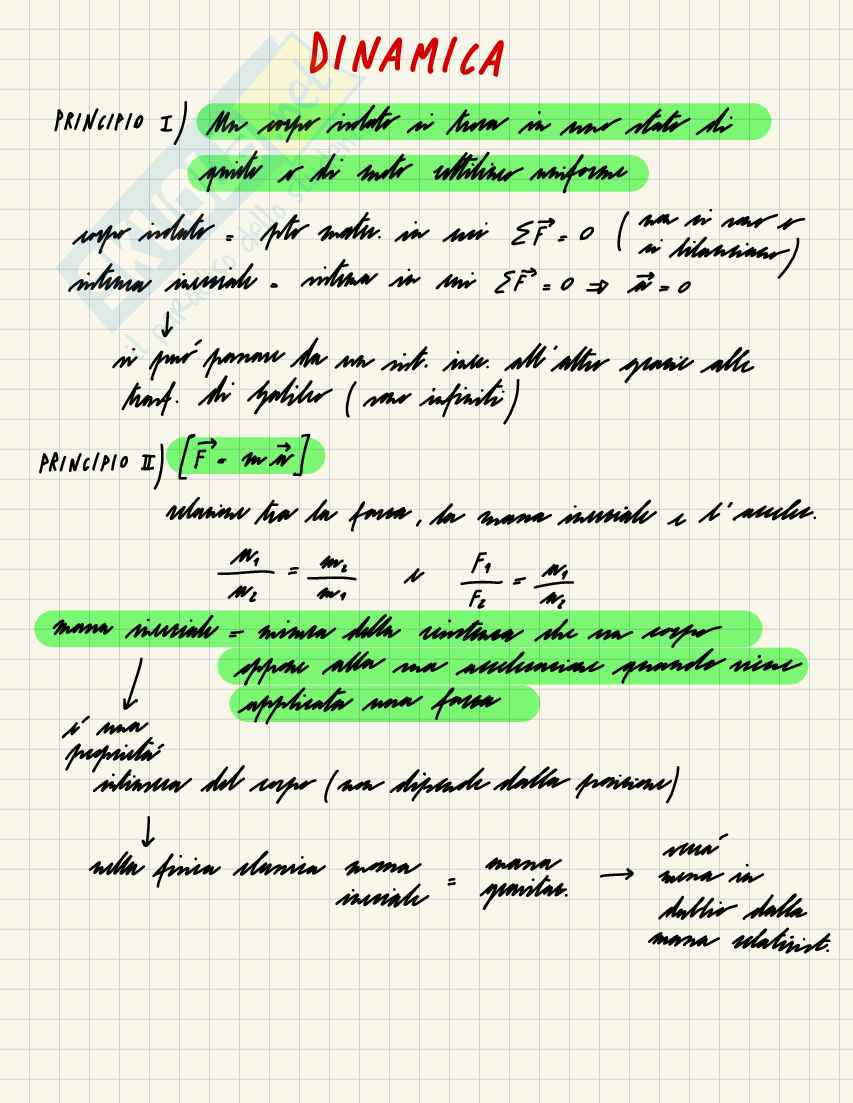 DINAMICA
PRINCIPIO I) Un corpo isolato si trova in uno stato di
quiete o di moto rettilineo uniforme
corpo isolato = pto mater. in cui ΣF⃗ = 0 (non ci sono o
si bilanciano)
sistema inerziale = sistema in cui ΣF⃗ = 0 ⇒ a⃗ = 0
↓
si può passare da un sist. iner. all'altro grazie alle
trasf. di Galileo (sono infiniti)
PRINCIPIO II) [F⃗ = m a⃗]
relazione tra la forza, la massa inerziale e l'acceler.
a₁/a₂ = m₂/m₁ e F₁/F₂ = a₁/a₂
massa inerziale = misura della resistenza che un corpo
oppone alla sua accelerazione quando viene
applicata una forza
↓
è una
proprietà
intinseca del corpo (non dipende dalla posizione)
↓
nella fisica classica massa inerziale = massa gravitaz. → verrà
messa in
dubbio dalla
massa relativist.
SKUOLA.net
il paradiso dello studente